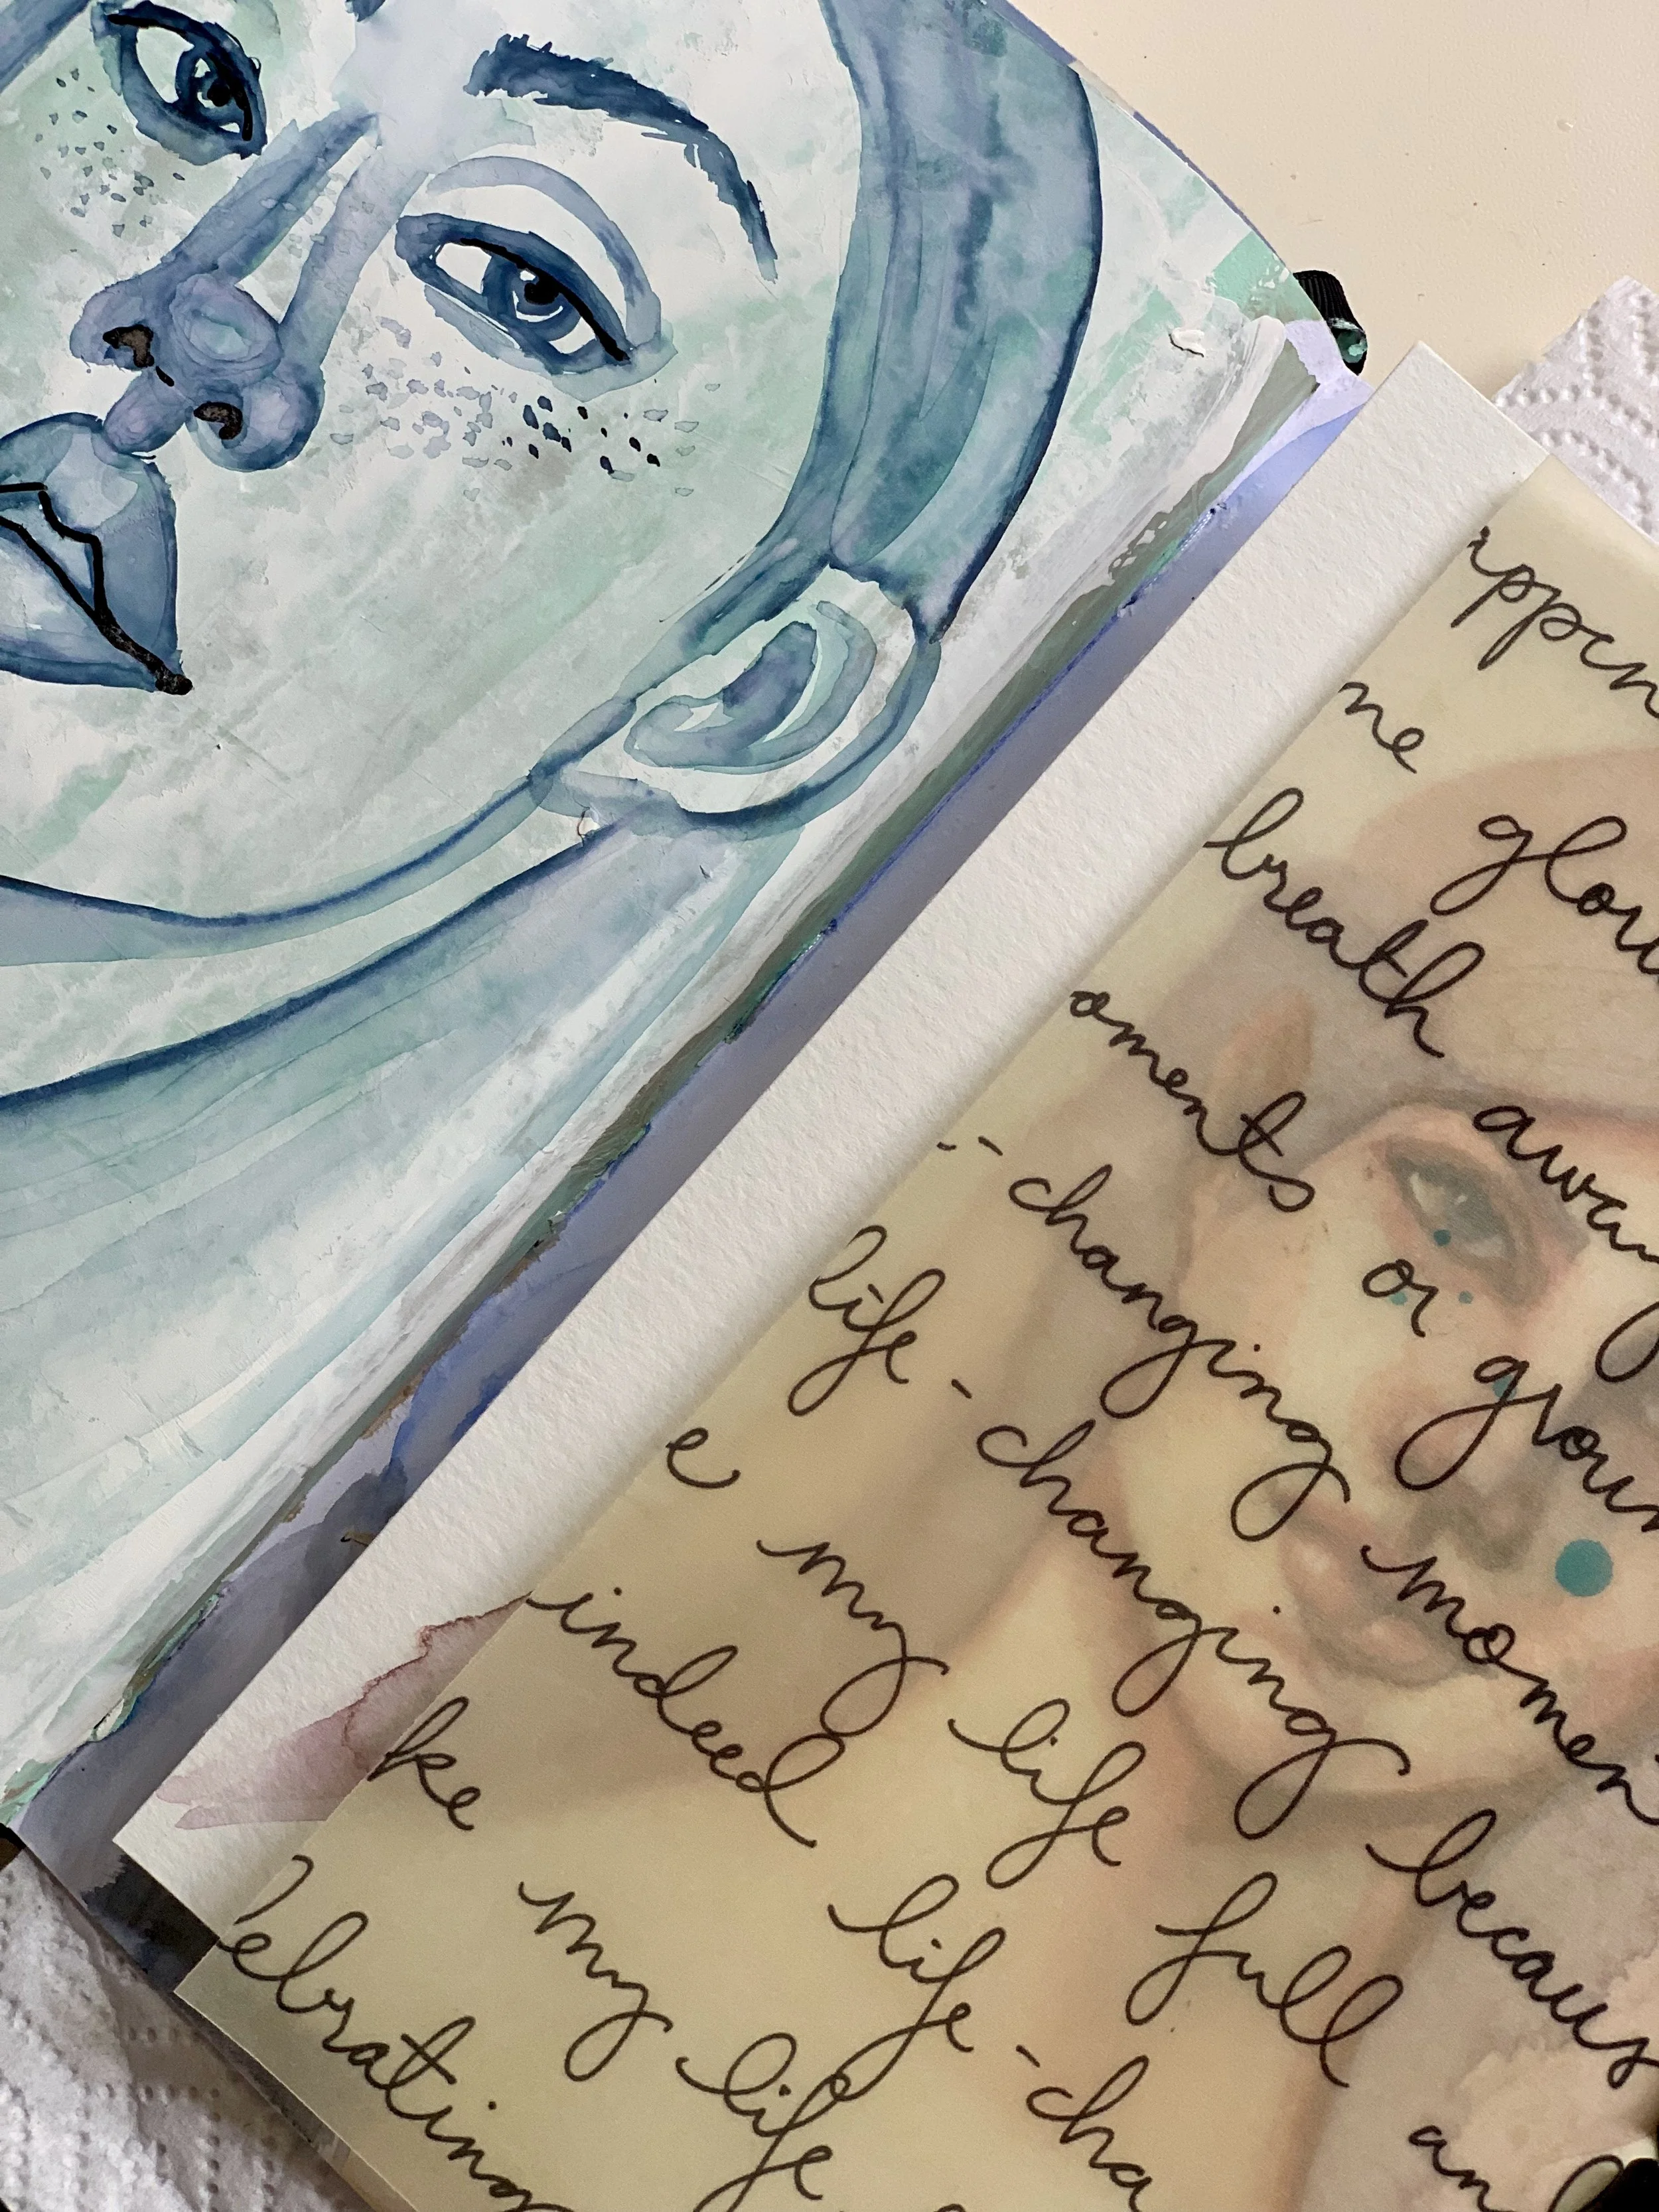 appen
me glor
breath away
oments or groun
-changing momen
life-changing becaus
e my life full an
indeed life-cha
ke my life
lebrating